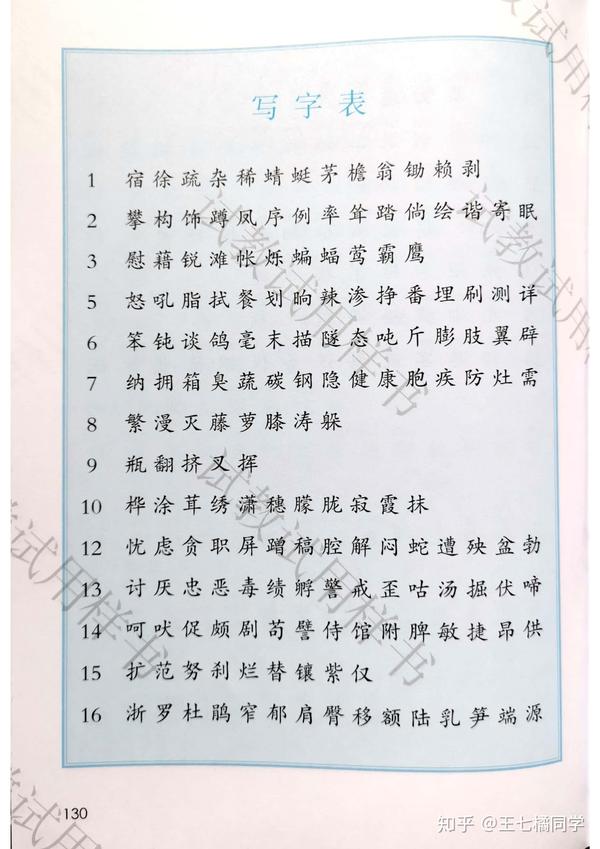 写字表
1 宿徐疏杂稀蜻蜓茅檐翁锄赖剥
2 攀构饰蹲凤序例率耸踏倘绘谐寄眠
3 慰藉锐滩帐烁蝙蝠莺霸鹰
5 怒吼脂拭餐划晌辣渗挣番埋刷测详
6 笨钝谈鸽毫末描隧态吨斤膨肢翼辟
7 纳拥箱臭蔬碳钢隐健康胞疾防灶需
8 繁漫灭藤萝膝涛躲
9 瓶翻挤叉挥
10 桦涂茸绣潇穗朦胧寂霞抹
12 忧虑贪职屏蹭稿腔解闷蛇遭殃盆勃
13 讨厌忠恶毒绩孵警戒歪咕汤掘伏啼
14 呵吠促颇剧苟譬侍馆附脾敏捷昂供
15 扩范努刹烂替镶紫仅
16 浙罗杜鹃窄郁肩臀移额陆乳笋端源
130
知乎 @王七橘同学
试教试用样书
试教试用样书
试教试用样书
试教试用样书
试教试用样书